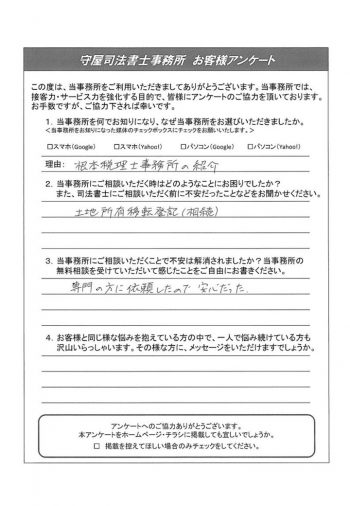 守屋司法書士事務所 お客様アンケート
この度は、当事務所をご利用いただきましてありがとうございます。当事務所では、
接客力・サービス力を強化する目的で、皆様にアンケートのご協力を頂いております。
お手数ですが、ご協力下されば幸いです。
1. 当事務所を何でお知りになり、なぜ当事務所をお選びいただきましたか。
<当事務所をお知りになった媒体のチェックボックスにチェックをお願いいたします。>
□スマホ(Google) □スマホ(Yahoo!) □パソコン(Google) □パソコン(Yahoo!)
理由: 根本税理士事務所の紹介
2. 当事務所にご相談いただく時はどのようなことにお困りでしたか?
また、司法書士にご相談いただく前に不安だったことなどをお聞かせください。
土地所有移転登記(相続)
3. 当事務所にご相談いただくことで不安は解消されましたか?当事務所の
無料相談を受けていただいて感じたことをご自由にお書きください。
専門の方に依頼したので安心だった.
4. お客様と同じ様な悩みを抱えている方の中で、一人で悩み続けている方も
沢山いらっしゃいます。その様な方に、メッセージをいただけますでしょうか。
アンケートへのご協力ありがとうございます。
本アンケートをホームページ・チラシに掲載しても宜しいでしょうか。
□ 掲載を控えてほしい場合のみチェックをしてください。